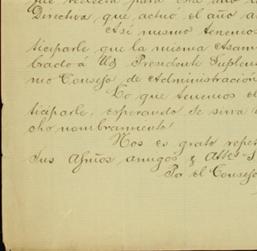 que
Directiva, que actuó el año a
Así mismo tenemos
ticiparle, que la misma Asam
brado á Ud. Presidente Suplen
mo Consejo de Administración
Lo que tenemos el
ticiparle, esperando se sirva
cho nombramiento.
Nos es grato repet
sus Afmos, amigos y Attos S
Por el Consejo